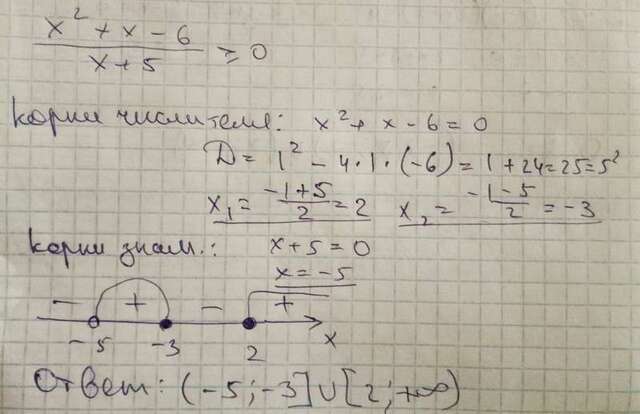 x² + x - 6
x + 5 ≥ 0
Корни числителя: x² + x - 6 = 0
D = 1² - 4·1·(-6) = 1 + 24 = 25 = 5²
x₁ = (-1+5)/2 = 2 x₂ = (-1-5)/2 = -3
Корни знам.: x + 5 = 0
x = -5
- + - +
-5 -3 2 x
Ответ: (-5; -3] ∪ [2; +∞)